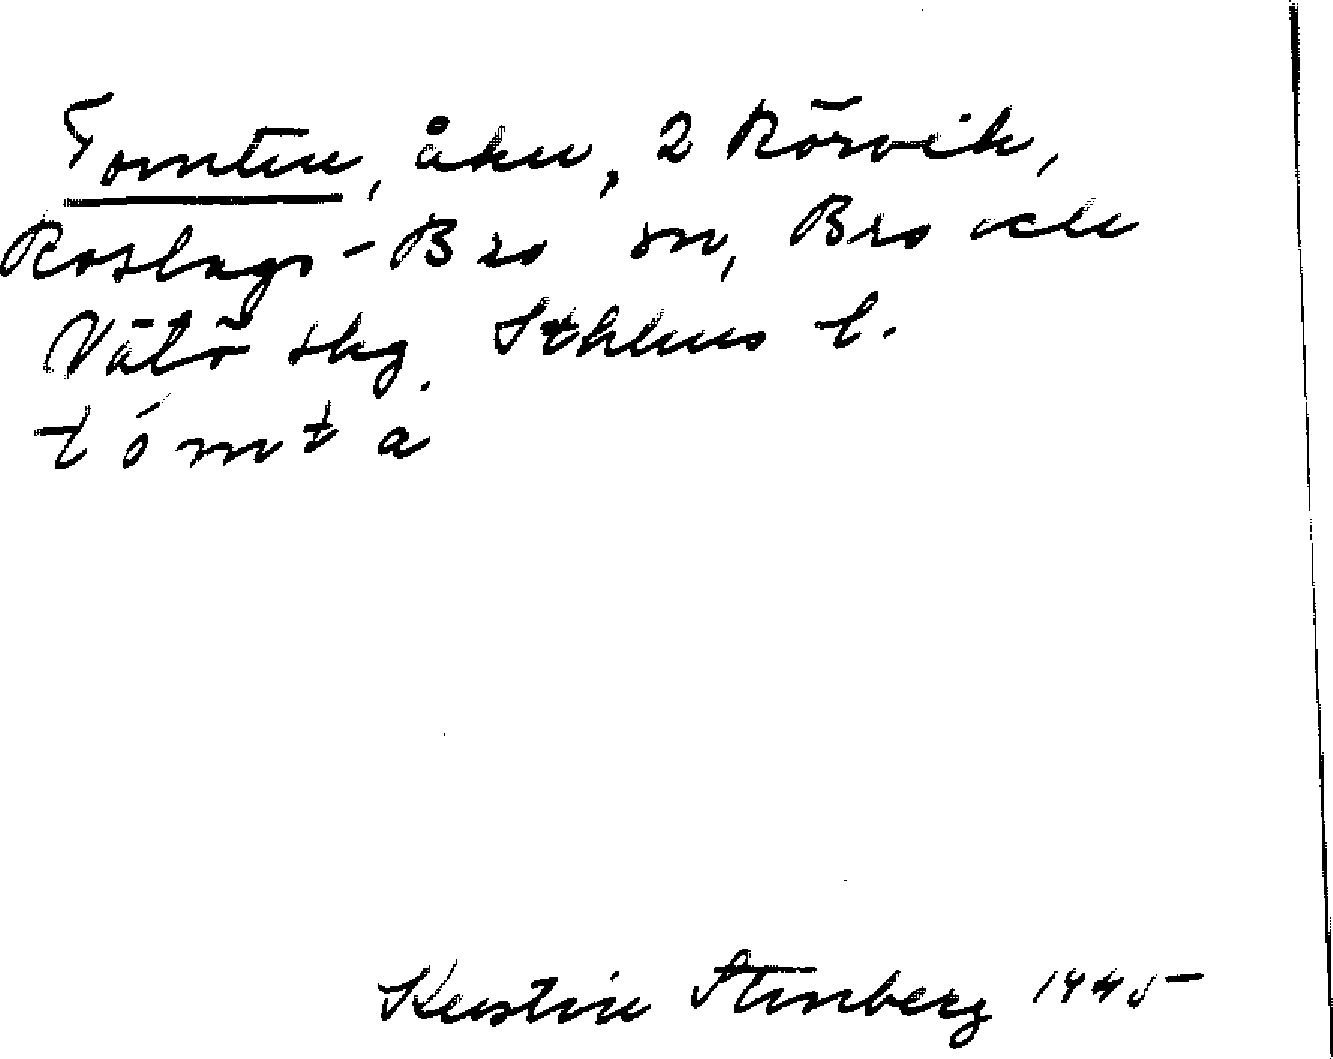 Tomten, åker, 2 Rörvik,
Roslags-Bro sn, Bro och
Vätö skg. Sthlms l.
tómta
Kerstin Stenberg 1945